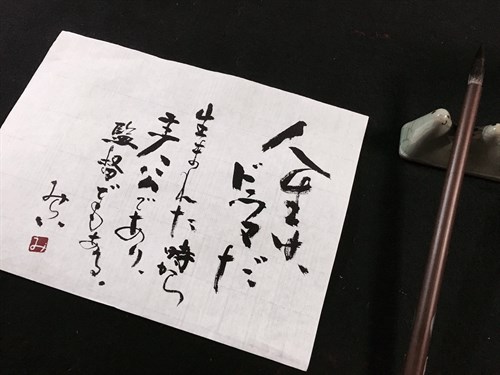 人生は、
ドラマだ
生まれた時から
主人公であり、
監督でもある。
みらい
み